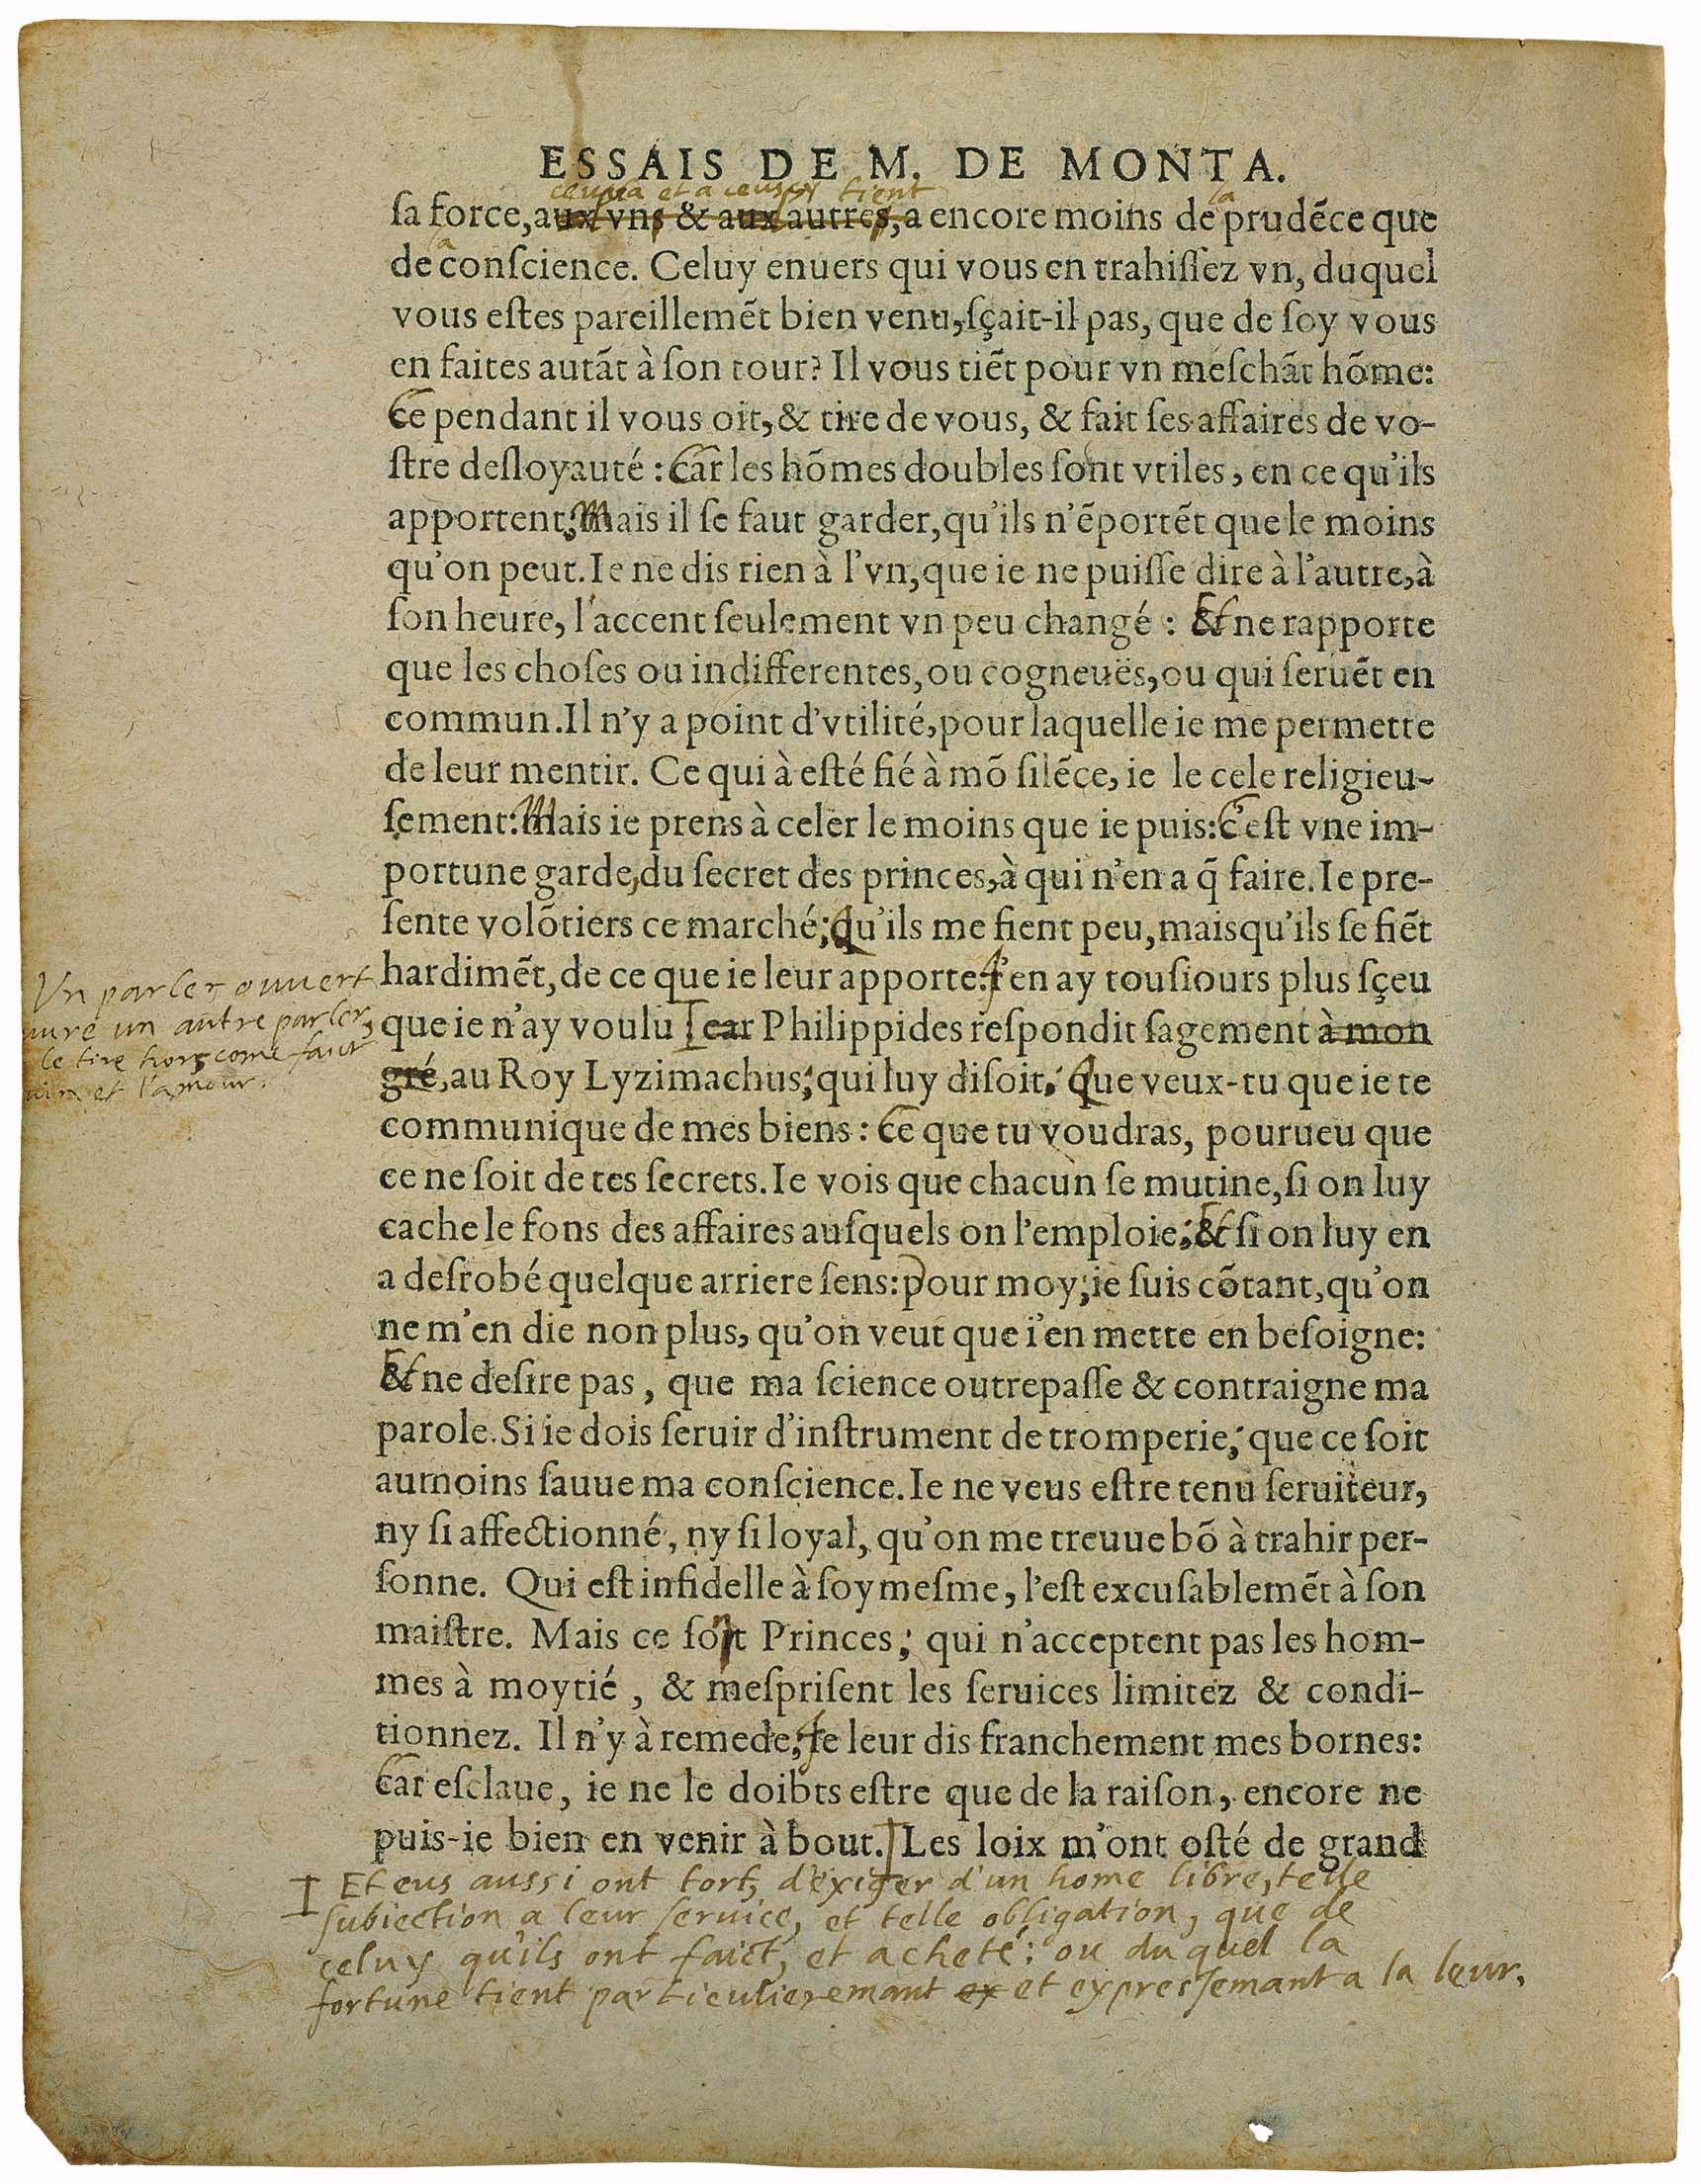 ESSAIS DE M. DE MONTA.
ceusla et a ceuscy tient
la
ſa force, aux vns & aux autres, a encore moins de prudẽce que
la
de conſcience. Celuy enuers qui vous en trahiſſez vn, duquel
vous eſtes pareillemẽt bien venu, ſçait-il pas, que de ſoy vous
en faites autãt à ſon tour? Il vous tiẽt pour vn meſchãt hõme:
Ce pendant il vous oit, & tire de vous, & fait ſes affaires de vo-
ſtre deſloyauté : Car les hõmes doubles ſont vtiles, en ce qu'ils
apportent; Mais il ſe faut garder, qu'ils n'ẽportẽt que le moins
qu'on peut. Ie ne dis rien à l'vn, que ie ne puiſſe dire à l'autre, à
ſon heure, l'accent ſeulement vn peu changé : Et ne rapporte
que les choſes ou indifferentes, ou cogneuës, ou qui ſeruẽt en
commun. Il n'y a point d'vtilité, pour laquelle ie me permette
de leur mentir. Ce qui à eſté fié à mõ ſilẽce, ie le cele religieu-
ſement: Mais ie prens à celer le moins que ie puis: C'eſt vne im-
portune garde, du ſecret des princes, à qui n'en a q̃ faire. Ie pre-
ſente volõtiers ce marché; Qu'ils me fient peu, mais qu'ils ſe fiẽt
hardimẽt, de ce que ie leur apporte: I'en ay touſiours plus ſçeu
que ie n'ay voulu car Philippides reſpondit ſagement à mon
gré, au Roy Lyzimachus; qui luy diſoit, Que veux-tu que ie te
communique de mes biens : Ce que tu voudras, pourueu que
ce ne ſoit de tes ſecrets. Ie vois que chacun ſe mutine, ſi on luy
cache le fons des affaires auſquels on l'emploie; Et ſi on luy en
a deſrobé quelque arriere ſens: Pour moy, ie ſuis cõtant, qu'on
ne m'en die non plus, qu'on veut que i'en mette en beſoigne:
Et ne deſire pas, que ma ſcience outrepaſſe & contraigne ma
parole. Si ie dois ſeruir d'inſtrument de tromperie, que ce ſoit
aumoins ſauue ma conſcience. Ie ne veus eſtre tenu ſeruiteur,
ny ſi affectionné, ny ſi loyal, qu'on me treuue bõ à trahir per-
ſonne. Qui eſt infidelle à ſoymeſme, l'eſt excuſablemẽt à ſon
maiſtre. Mais ce ſont Princes; qui n'acceptent pas les hom-
mes à moytié, & meſpriſent les ſeruices limitez & condi-
tionnez. Il n'y à remede; Ie leur dis franchement mes bornes:
Car eſclaue, ie ne le doibts eſtre que de la raiſon, encore ne
puis-ie bien en venir à bout. Les loix m'ont oſté de grand
Vn parler ouvert
uvre un autre parler,
le tire hors come faict
vin et l'amour.
Et eus aussi ont tort, d'exiger d'un home libre, telle
subiection a leur service, et telle obligation, que de
celuy qu'ils ont faict, et acheté: ou duquel la
fortune tient particulieremant ex et expressemant a la leur,